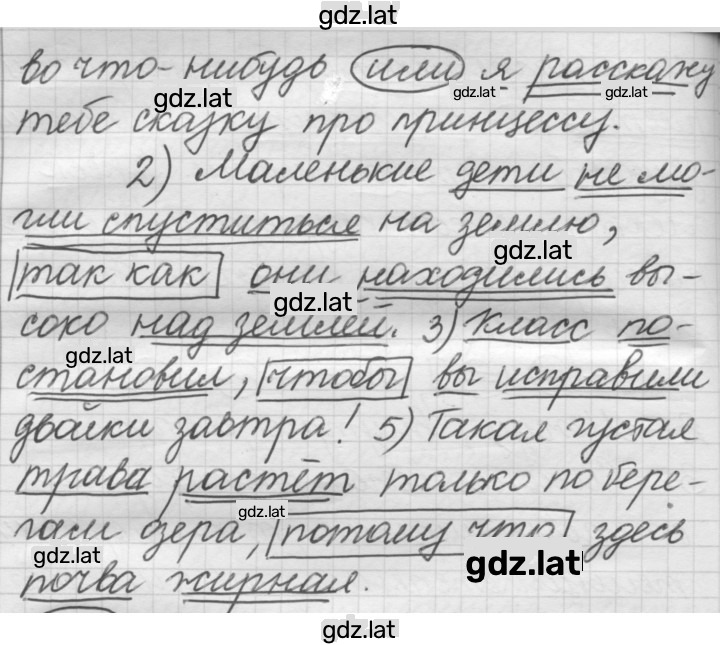 gdz.lat
во что-нибудь или я расскажу
gdz.lat gdz.lat gdz.lat
тебе сказку про принцессу.
2) Маленькие дети не мо-
гли спуститься на землю,
gdz.lat
так как они находились вы-
gdz.lat
соко над землёй. 3) Класс по-
gdz.lat
становил, чтобы вы исправили
двойки завтра! 5) Такая густая
трава растёт только по бере-
gdz.lat
гам озера, потому что здесь
gdz.lat gdz.lat
почва жирная.
gdz.lat